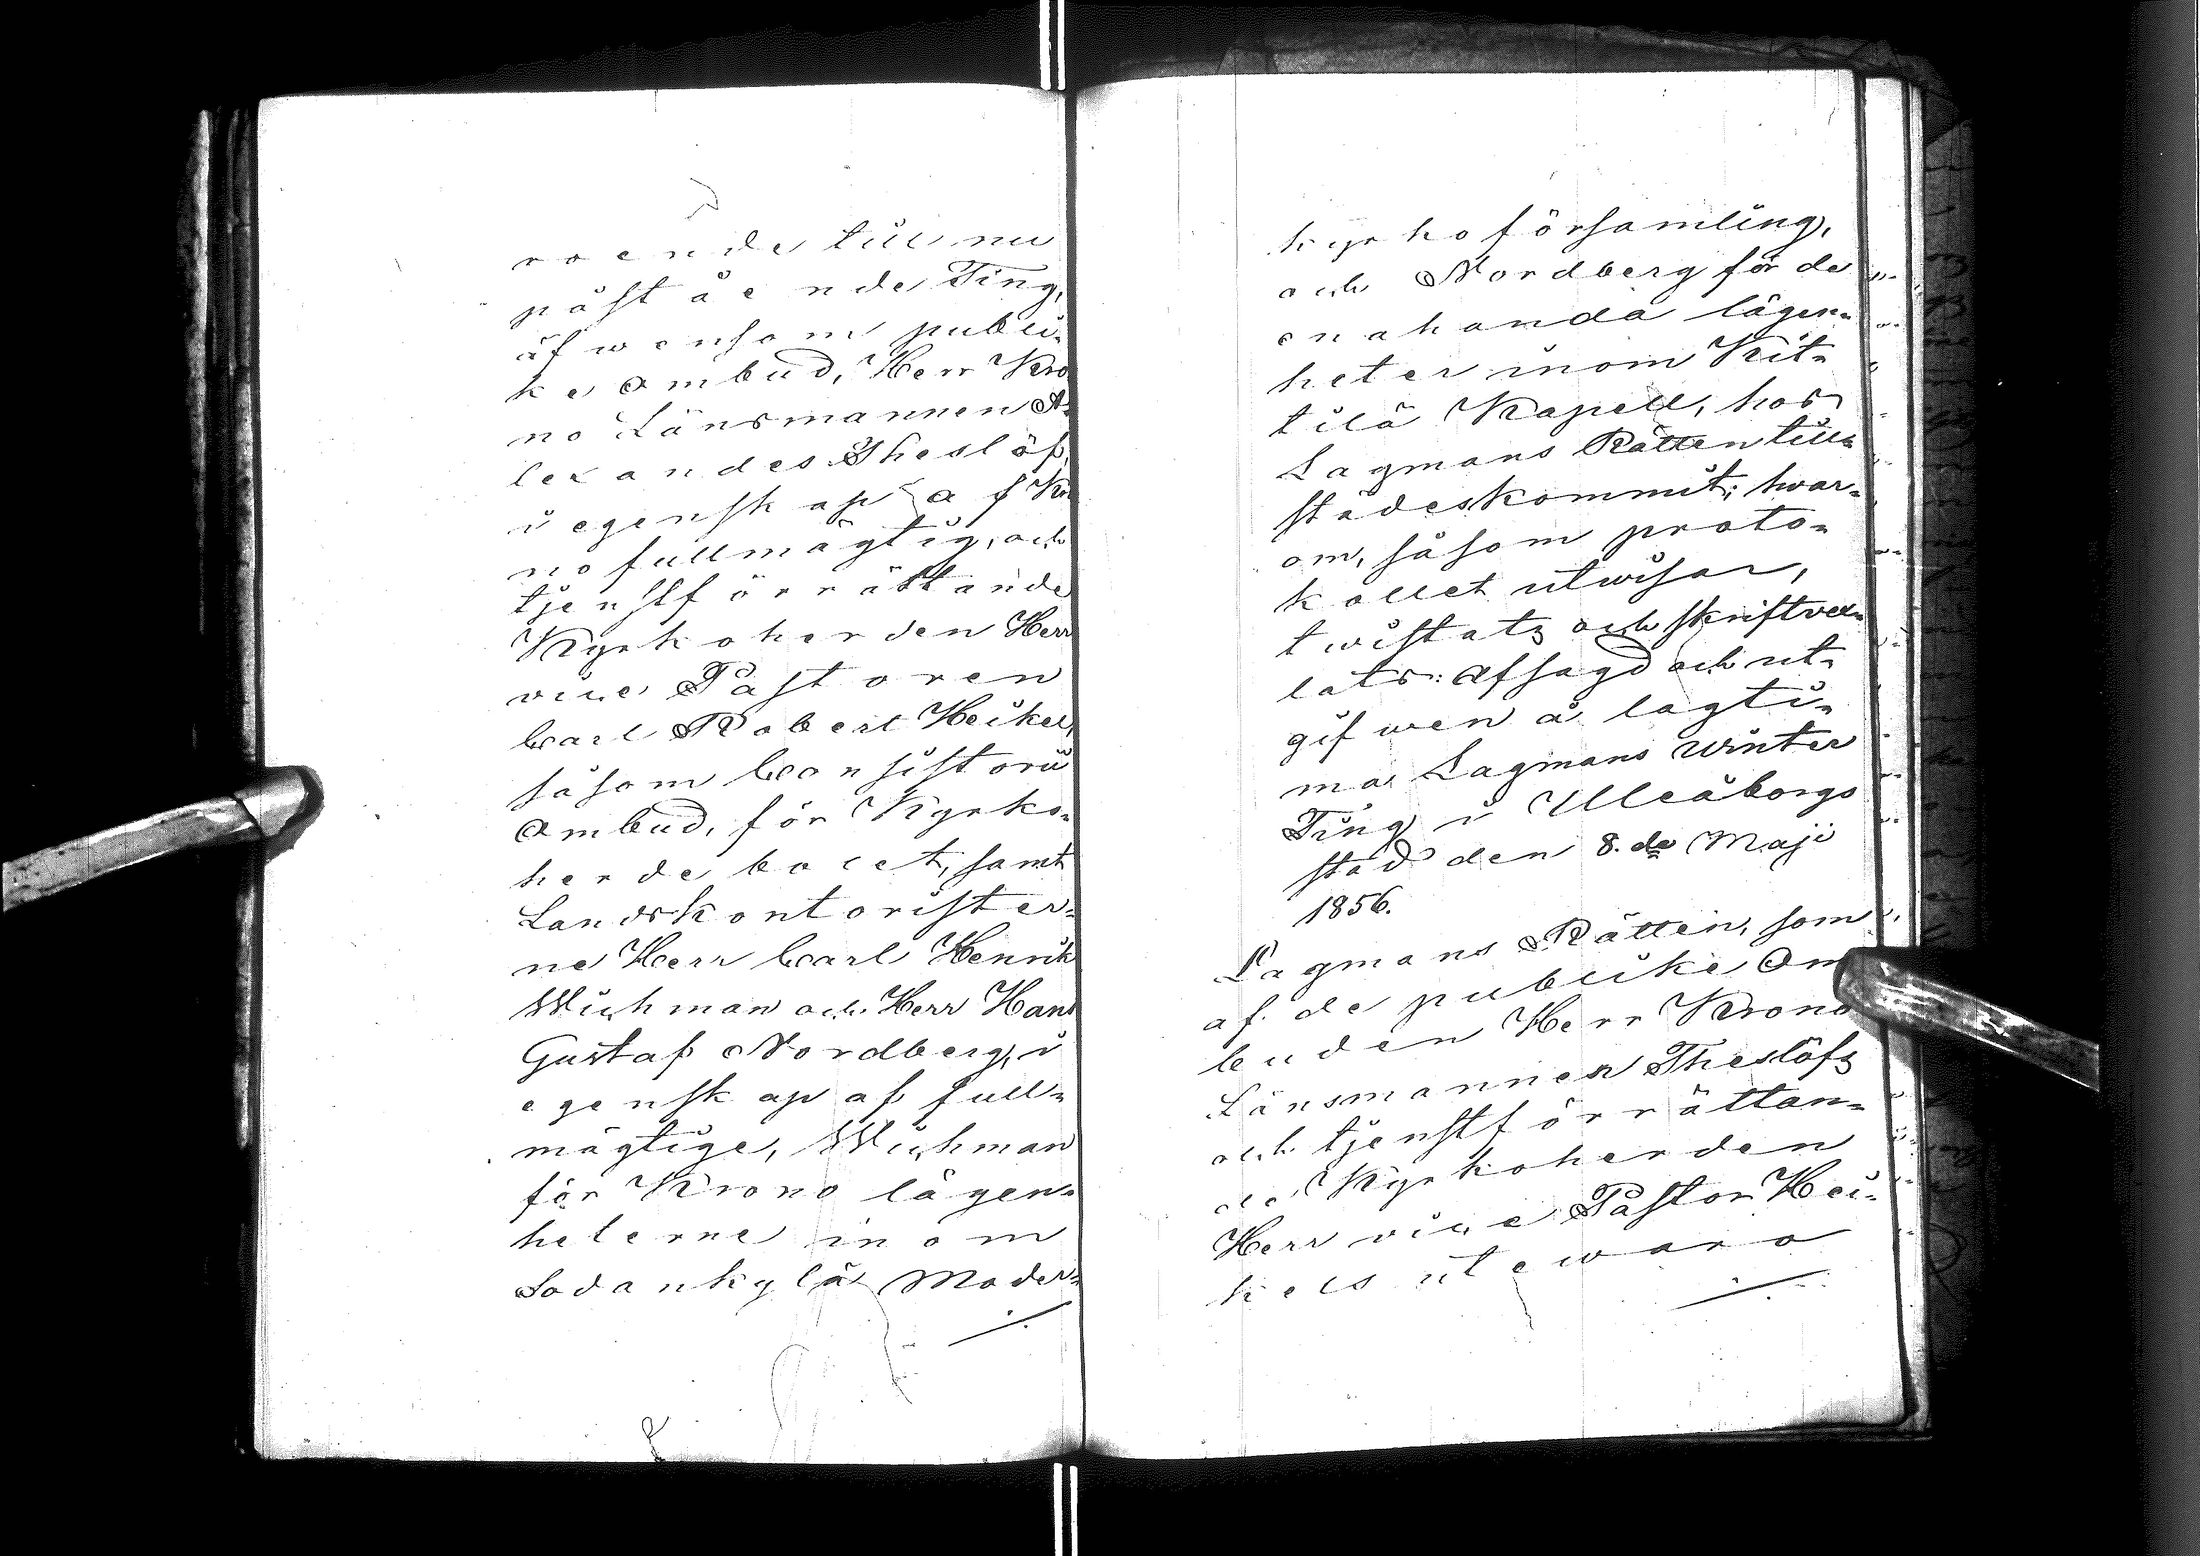 roende till nu
påstående Ting,
äfwensom publi-
ke Ombud, Herr Kro
no Länsmannen A-
lexander Theslöf,
i egenskap af Kro
no fullmägtig, och
tjenstförrättande
Kyrkoherden Herr
vice Pastoren
Carl Robert Heikel,
såsom Consistorii
Ombud, för Kyrko-
herde bolet, samt
Landskontorister-
ne Herr Carl Henrik
Wichman och Herr Hans
Gustaf Nordberg, i
egenskap af full-
mägtige, Wichman
för Krono lägen-
heterne inom
Sodankylä Moder-
kyrkoförsamling,
och Nordberg för de
enahanda lägen-
heter inom Kit-
tilä Kapell, hos
Lagmans Rätten till-
städeskommit; hvar-
om, såsom proto-
kollet utwisar,
twistats och skriftvex-
lats: Afsagd och ut-
gifwen å lagti-
ma Lagmans Winter
Ting i Uleåborgs
stad den 8.de Maji
1856.
Lagmans Rätten, som
af de publike Om
buden Herr Krono
Länsmannen Theslöfs
och tjenstförrättan-
de Kyrkoherden
Herr vice Pastor Hei-
kels utewaro